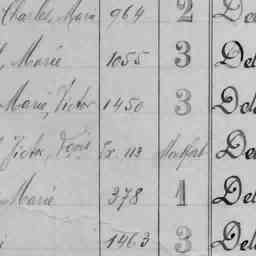 Charles, Marie 964 2 De
, Marie 1055 3 Del
Marie, Victor 1450 3 Del
Victor, Ex. 113 Monfort De
Marie 378 1 Del
1463 3 Del